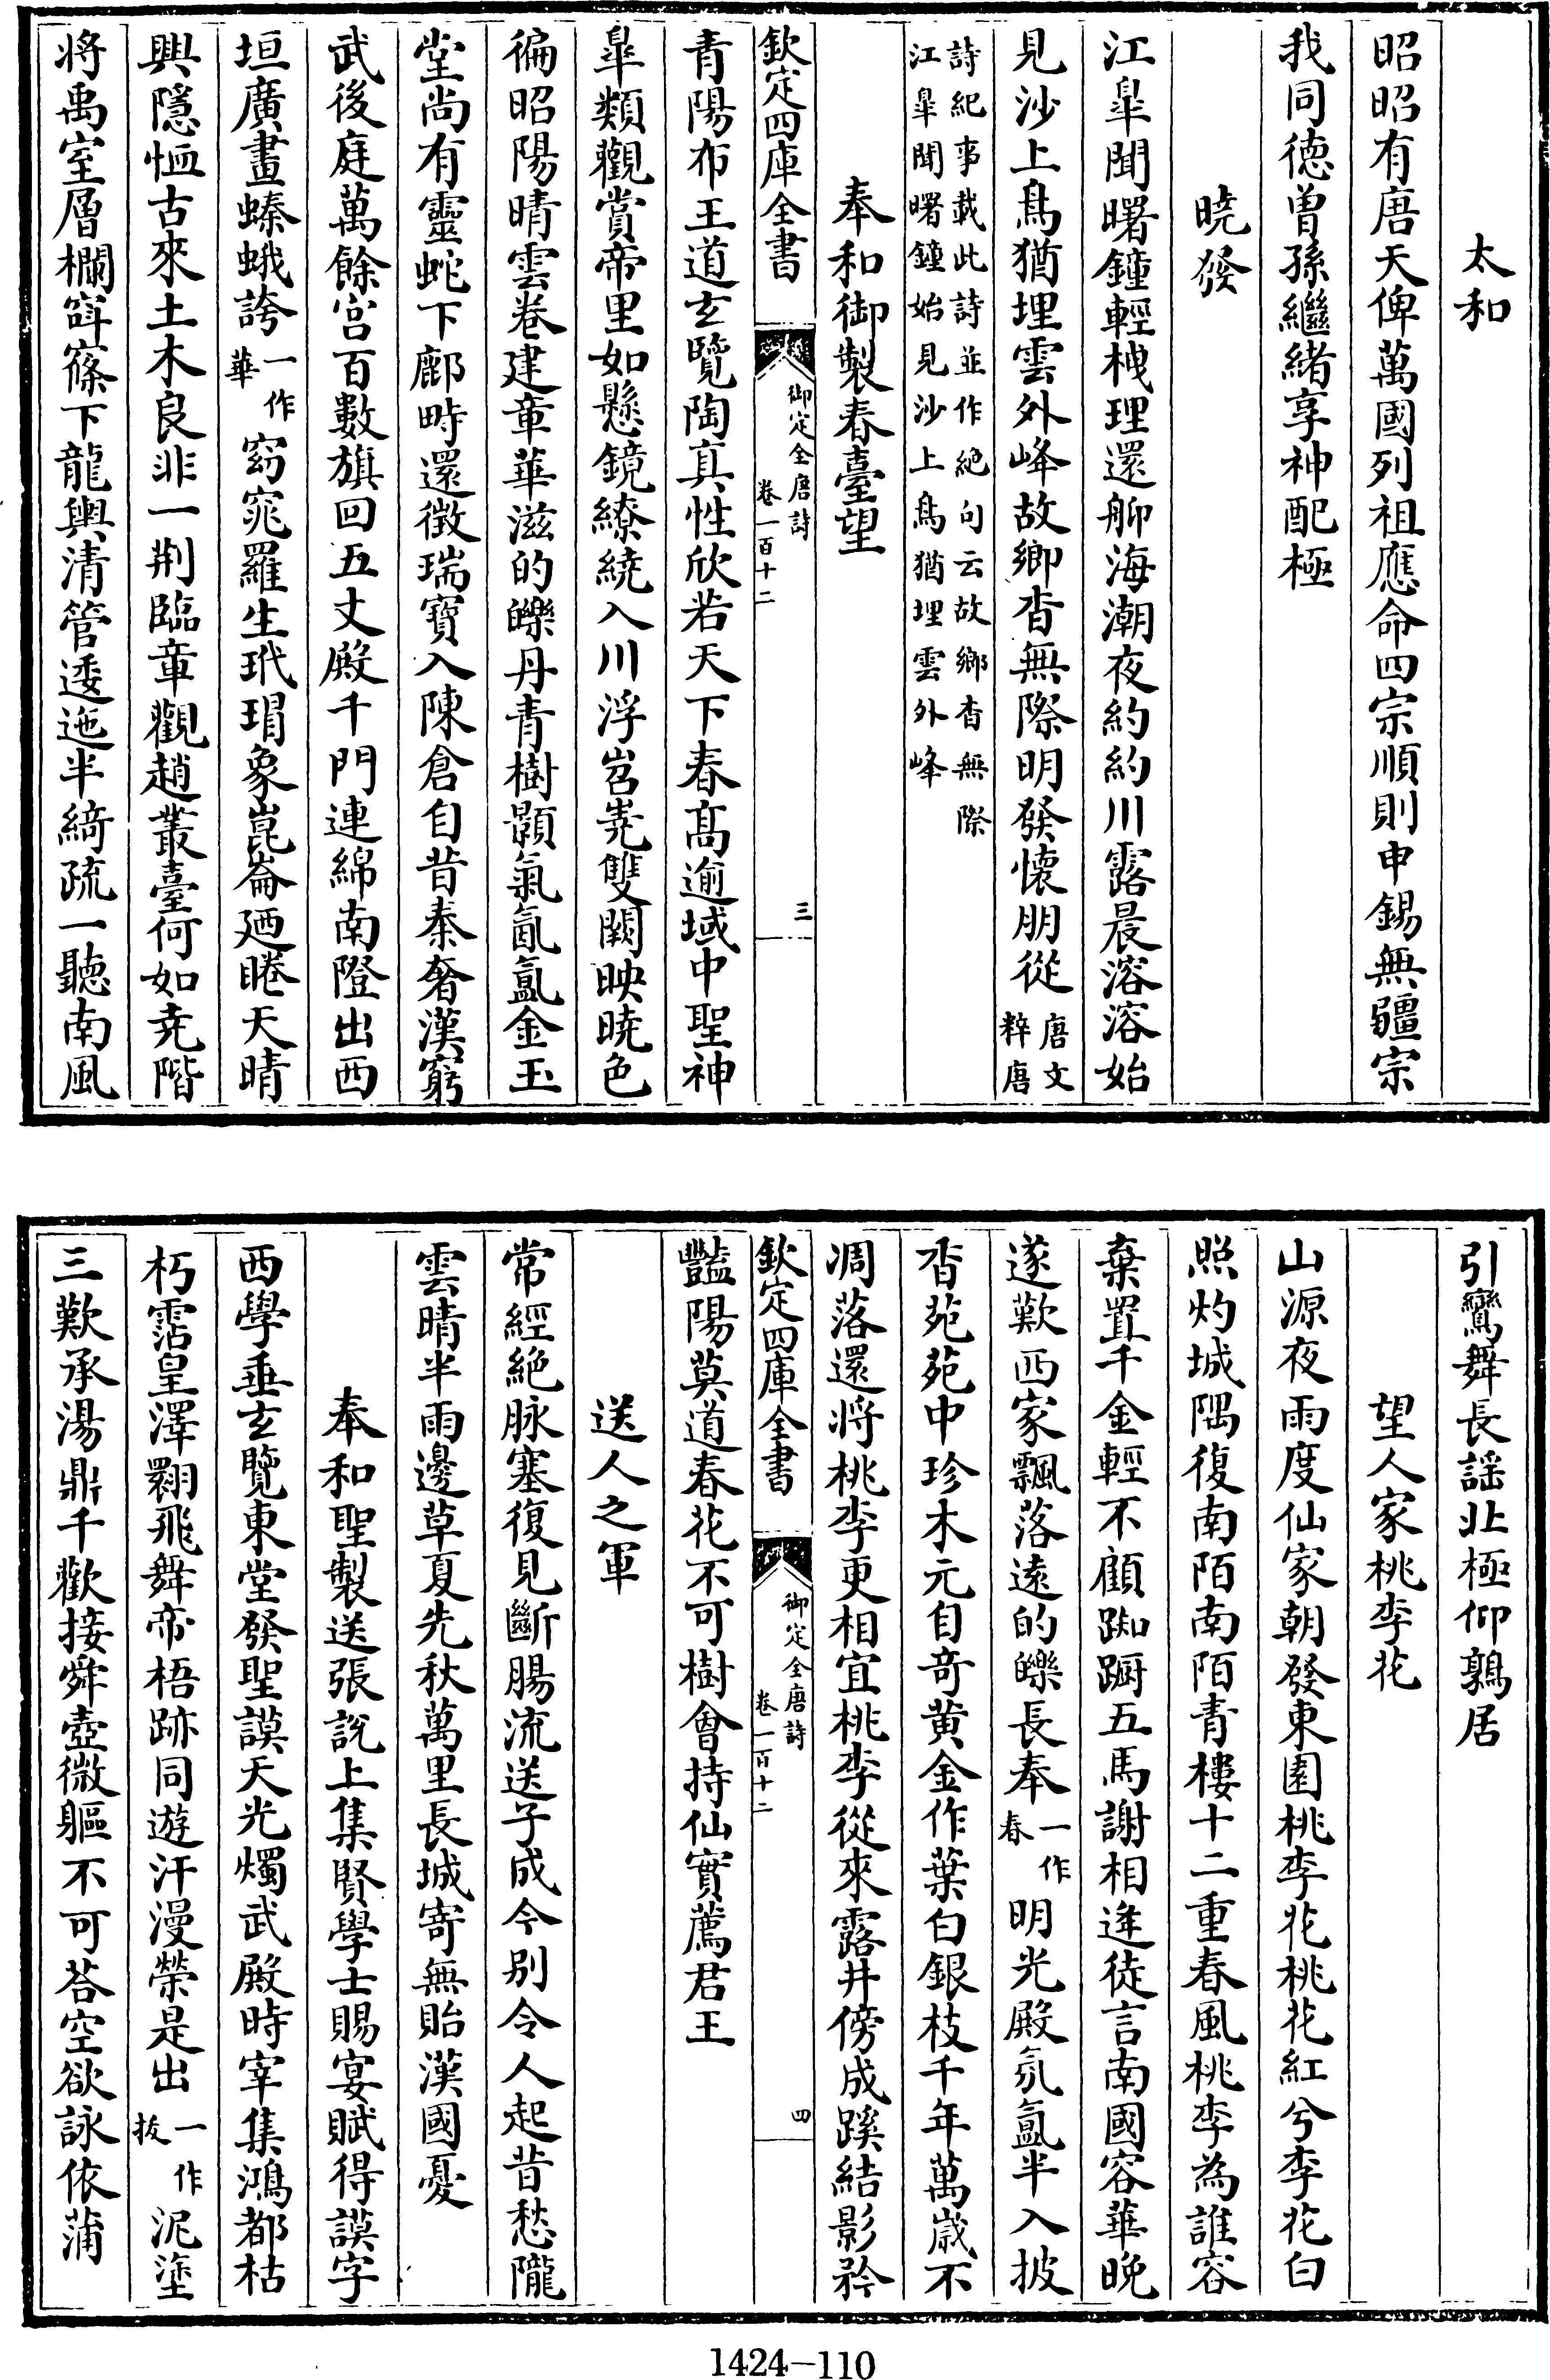 太和
昭昭有唐天俾萬國列祖應命四宗順則申錫無疆宗
我同德曾孫繼緒享神配極
曉發
江臯聞曙鐘輕栧理還舼海潮夜約約川露晨溶溶始
見沙上鳥猶埋雲外峰故鄉杳無際明發懷朋從唐文粹唐
詩紀事載此詩並作絶句云故鄉杳無際
江臯聞曙鐘始見沙上鳥猶埋雲外峰
奉和御製春臺望
欽定四庫全書
御定全唐詩
卷一百十二
三
青陽布王道玄覽陶真性欣若天下春髙逾域中聖神
臯類觀賞帝里如懸鏡繚繞入川浮岧嶤雙闕映曉色
徧昭陽晴雲卷建章華滋的皪丹青樹顥氣氤氲金玉
堂尚有靈蛇下鄜畤還徵瑞寶入陳倉自昔秦奢漢窮
武後庭萬餘宫百數旗回五丈殿千門連綿南隥出西
垣廣畫螓蛾誇一作華窈窕羅生玳瑁象崑崙廼睠天晴
興隱恤古來土木良非一荆臨章觀趙叢臺何如堯階
將禹室層欄窲篠下龍輿清管逶迤半綺疏一聽南風
引鸞舞長謡北極仰鶉居
望人家桃李花
山源夜雨度仙家朝發東園桃李花桃花紅兮李花白
照灼城隅復南陌南陌青樓十二重春風桃李為誰容
棄置千金輕不顧踟蹰五馬謝相逢徒言南國容華晚
遂歎西家飄落遠的皪長奉一作春明光殿氛氲半入披
香苑苑中珍木元自竒黄金作葉白銀枝千年萬歲不
凋落還將桃李更相宜桃李從來露井傍成蹊結影矜
欽定四庫全書
御定全唐詩
卷一百十二
四
豔陽莫道春花不可樹會持仙實薦君王
送人之軍
常經絶脉塞復見斷腸流送子成今别令人起昔愁隴
雲晴半雨邊草夏先秋萬里長城寄無貽漢國憂
奉和聖製送張說上集賢學士賜宴賦得謨字
西學垂玄覽東堂發聖謨天光燭武殿時宰集鴻都枯
朽霑皇澤翾飛舞帝梧跡同遊汗漫榮是出一作拔泥塗
三歎承湯鼎千歡接舜壺微軀不可荅空欲詠依蒲
1424—110